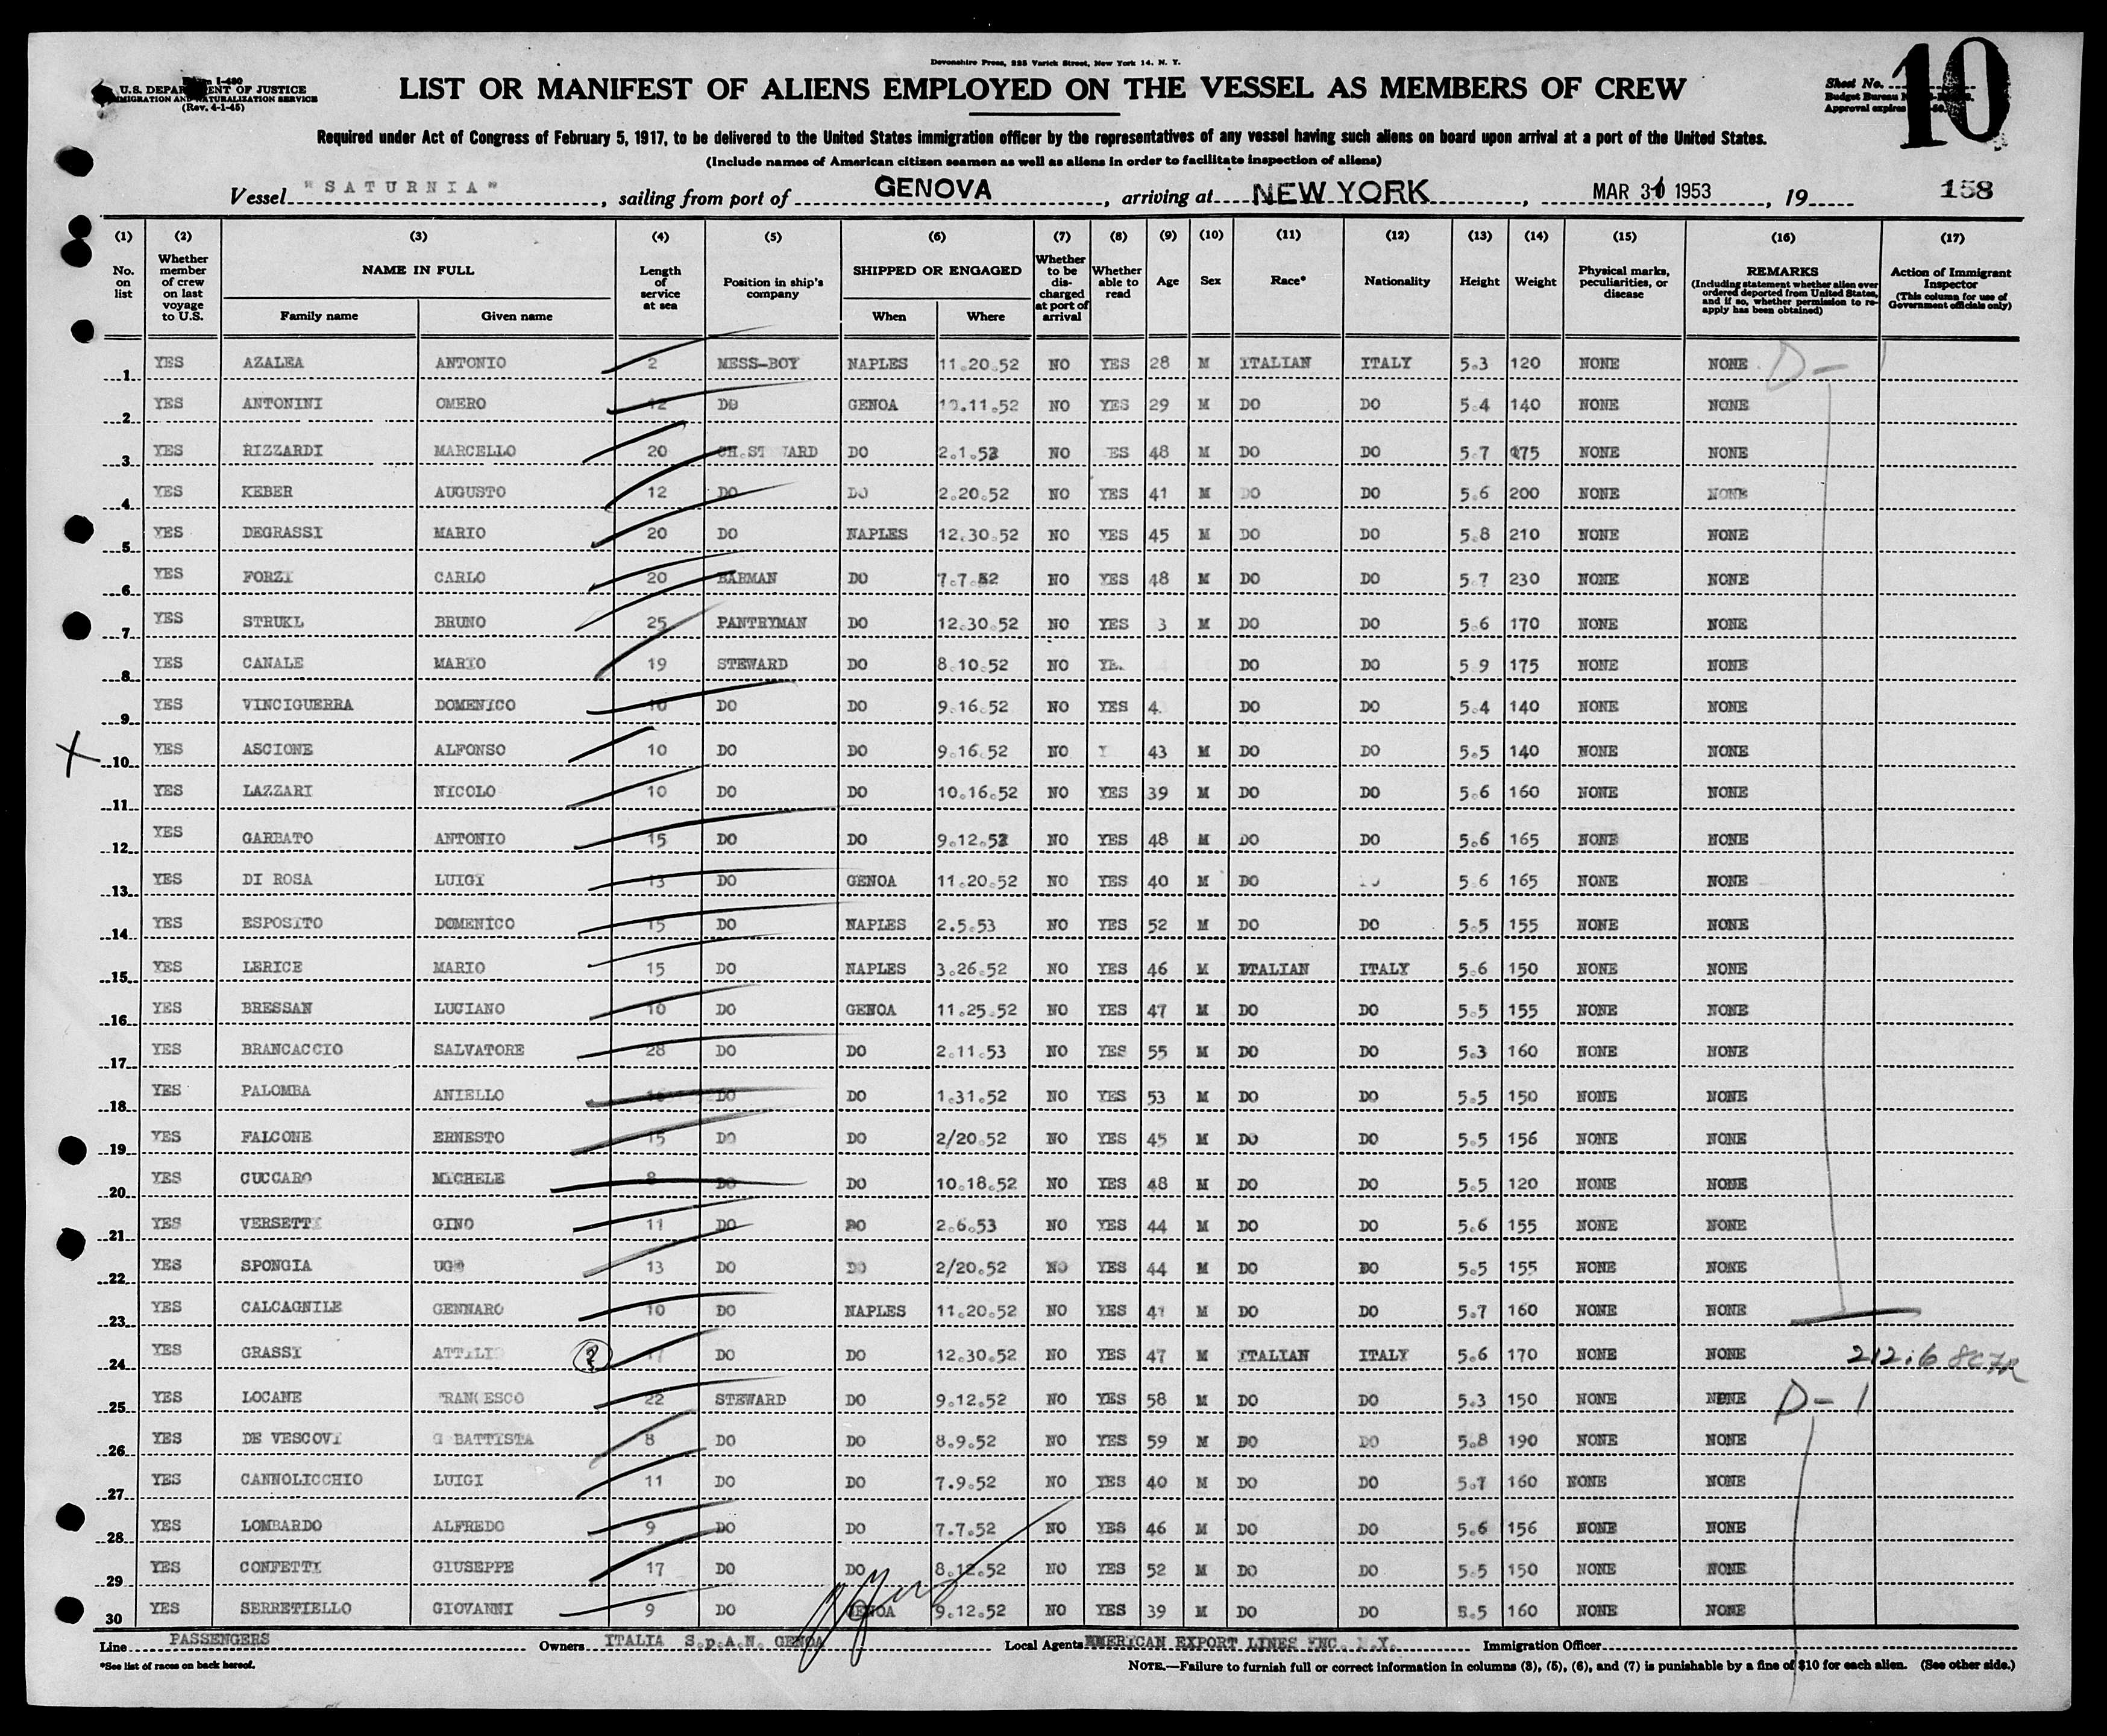 Devonshire Press, 225 Varick Street, New York 14, N. Y.
Form I-480
U.S. DEPARTMENT OF JUSTICE
IMMIGRATION AND NATURALIZATION SERVICE
(Rev. 4-1-45)
LIST OR MANIFEST OF ALIENS EMPLOYED ON THE VESSEL AS MEMBERS OF CREW
Sheet No. 10
Budget Bureau
Approval expires
Required under Act of Congress of February 5, 1917, to be delivered to the United States immigration officer by the representatives of any vessel having such aliens on board upon arrival at a port of the United States.
(Include names of American citizen seamen as well as aliens in order to facilitate inspection of aliens)
Vessel "SATURNIA", sailing from port of GENOVA, arriving at NEW YORK, MAR 31 1953, 19 158
(1) (2) (3) (4) (5) (6) (7) (8) (9) (10) (11) (12) (13) (14) (15) (16) (17)
No. on list Whether member of crew on last voyage to U.S. NAME IN FULL Family name Given name Length of service at sea Position in ship's company SHIPPED OR ENGAGED When Where Whether to be discharged at port of arrival Whether able to read Age Sex Race* Nationality Height Weight Physical marks, peculiarities, or disease REMARKS (Including statement whether alien ever ordered deported from United States, and if so, whether permission to reapply has been obtained) Action of Immigrant Inspector (This column for use of Government officials only)
1 YES AZALEA ANTONIO 2 MESS-BOY NAPLES 11.20.52 NO YES 28 M ITALIAN ITALY 5.3 120 NONE NONE D-1
2 YES ANTONINI OMERO 12 DO GENOA 10.11.52 NO YES 29 M DO DO 5.4 140 NONE NONE
3 YES RIZZARDI MARCELLO 20 CH.ST WARD DO 2.1.52 NO ES 48 M DO DO 5.7 175 NONE NONE
4 YES KEBER AUGUSTO 12 DO DO 2.20.52 NO YES 41 M DO DO 5.6 200 NONE NONE
5 YES DEGRASSI MARIO 20 DO NAPLES 12.30.52 NO YES 45 M DO DO 5.8 210 NONE NONE
6 YES FORZI CARLO 20 BARMAN DO 7.7.52 NO YES 48 M DO DO 5.7 230 NONE NONE
7 YES STRUKL BRUNO 25 PANTRYMAN DO 12.30.52 NO YES 3 M DO DO 5.6 170 NONE NONE
8 YES CANALE MARIO 19 STEWARD DO 8.10.52 NO YE DO DO 5.9 175 NONE NONE
9 YES VINCIGUERRA DOMENICO 10 DO DO 9.16.52 NO YES 4 DO DO 5.4 140 NONE NONE
10 YES ASCIONE ALFONSO 10 DO DO 9.16.52 NO Y 43 M DO DO 5.5 140 NONE NONE
11 YES LAZZARI NICOLO 10 DO DO 10.16.52 NO YES 39 M DO DO 5.6 160 NONE NONE
12 YES GARBATO ANTONIO 15 DO DO 9.12.52 NO YES 48 M DO DO 5.6 165 NONE NONE
13 YES DI ROSA LUIGI 13 DO GENOA 11.20.52 NO YES 40 M DO 5.6 165 NONE NONE
14 YES ESPOSITO DOMENICO 15 DO NAPLES 2.5.53 NO YES 52 M DO DO 5.5 155 NONE NONE
15 YES LERICE MARIO 15 DO NAPLES 3.26.52 NO YES 46 M ITALIAN ITALY 5.6 150 NONE NONE
16 YES BRESSAN LUCIANO 10 DO GENOA 11.25.52 NO YES 47 M DO DO 5.5 155 NONE NONE
17 YES BRANCACCIO SALVATORE 28 DO DO 2.11.53 NO YES 55 M DO DO 5.3 160 NONE NONE
18 YES PALOMBA ANIELLO DO DO 1.31.52 NO YES 53 M DO DO 5.5 150 NONE NONE
19 YES FALCONE ERNESTO 15 DO DO 2/20.52 NO YES 45 M DO DO 5.5 156 NONE NONE
20 YES CUCCARO MICHELE 8 DO DO 10.18.52 NO YES 48 M DO DO 5.5 120 NONE NONE
21 YES VERSETTI GINO 11 DO DO 2.6.53 NO YES 44 M DO DO 5.6 155 NONE NONE
22 YES SPONGIA UGO 13 DO DO 2/20.52 NO YES 44 M DO DO 5.5 155 NONE NONE
23 YES CALCAGNILE GENNARO 10 DO NAPLES 11.20.52 NO YES 41 M DO DO 5.7 160 NONE NONE
24 YES GRASSI ATTILIO 17 DO DO 12.30.52 NO YES 47 M ITALIAN ITALY 5.6 170 NONE NONE
25 YES LOCANE FRANCESCO 22 STEWARD DO 9.12.52 NO YES 58 M DO DO 5.3 150 NONE NONE D-1
26 YES DE VESCOVI G BATTISTA 8 DO DO 8.9.52 NO YES 59 M DO DO 5.8 190 NONE NONE
27 YES CANNOLICCHIO LUIGI 11 DO DO 7.9.52 NO YES 40 M DO DO 5.7 160 NONE NONE
28 YES LOMBARDO ALFREDO 9 DO DO 7.7.52 NO YES 46 M DO DO 5.6 156 NONE NONE
29 YES CONFETTI GIUSEPPE 17 DO DO 8.12.52 NO YES 52 M DO DO 5.5 150 NONE NONE
30 YES SERRETIELLO GIOVANNI 9 DO GENOA 9.12.52 NO YES 39 M DO DO 5.5 160 NONE NONE
Line PASSENGERS Owners ITALIA S.p.A.N. GENOA Local Agents AMERICAN EXPORT LINES INC. N.Y. Immigration Officer
*See list of races on back hereof.
NOTE.—Failure to furnish full or correct information in columns (3), (5), (6), and (7) is punishable by a fine of $10 for each alien. (See other side.)